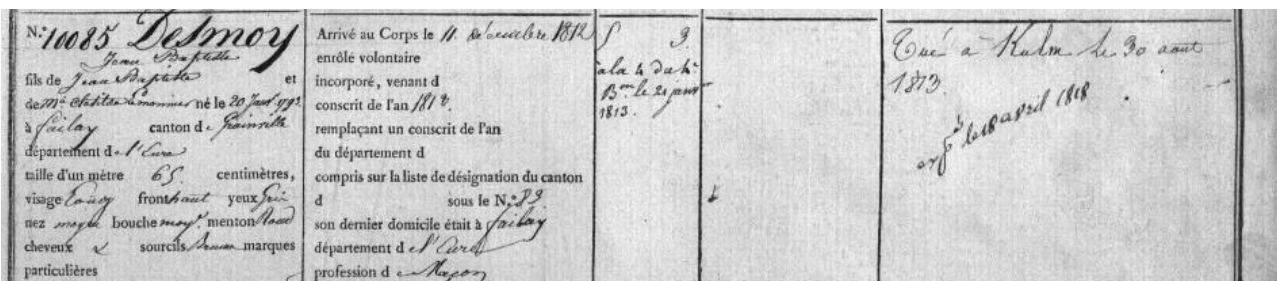 N.º 10085 Desmoy
Jean Baptiste
fils de Jean Baptiste et
de né le 20
à failay canton de
département de l'Eure
taille d'un mètre 65 centimètres,
visage front haut yeux gris
nez moyen bouche moy. menton Rond
cheveux & sourcils marques
particulières
Arrivé au Corps le 11 décembre 1812
enrôlé volontaire
incorporé, venant d
conscrit de l'an
remplaçant un conscrit de l'an
du département d
compris sur la liste de désignation du canton
d sous le N.º 83
son dernier domicile était à failay
département de l'Eure
profession de Maçon
à la 4
B.on le 21 janv
1813.
Tué à Kulm le 30 aout
1813.
le 18 april 1818